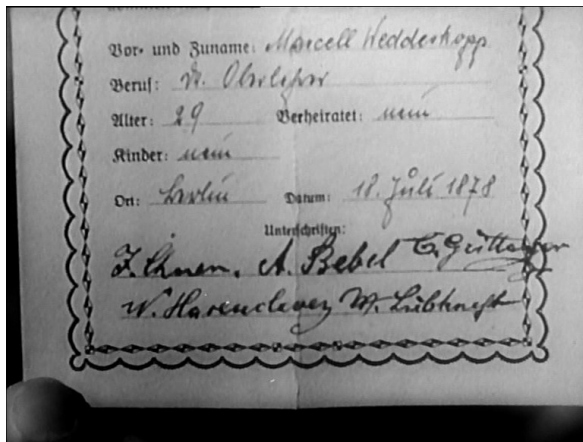 Vor- und Zuname: Marcell Wedderkopp
Beruf: Dr. Oberlehrer
Alter: 29 Verheiratet: nein
Kinder: nein
Ort: Berlin Datum: 18. Juli 1878
Unterschriften:
A. Bebel
W. Hasenclever W. Liebknecht